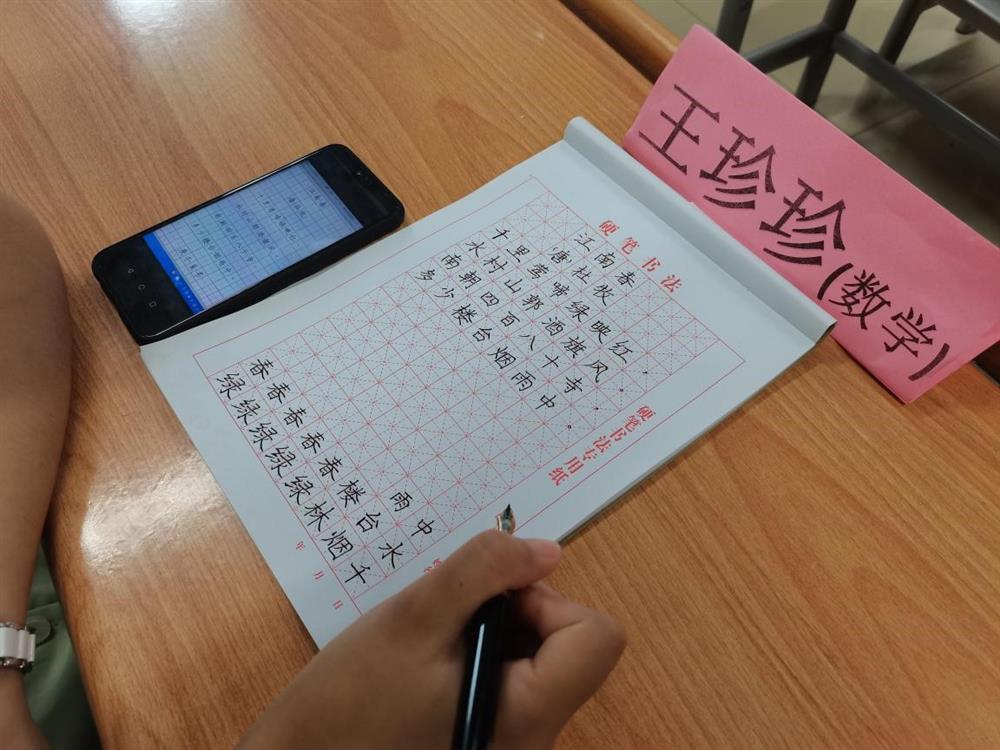 王珍珍(数学)
硬笔书法
江南春
唐 杜牧
千里莺啼绿映红，
水村山郭酒旗风。
南朝四百八十寺，
多少楼台烟雨中。
雨中
春春春春春楼台水
绿绿绿绿绿林烟千
硬笔书法专用纸
年 月 日